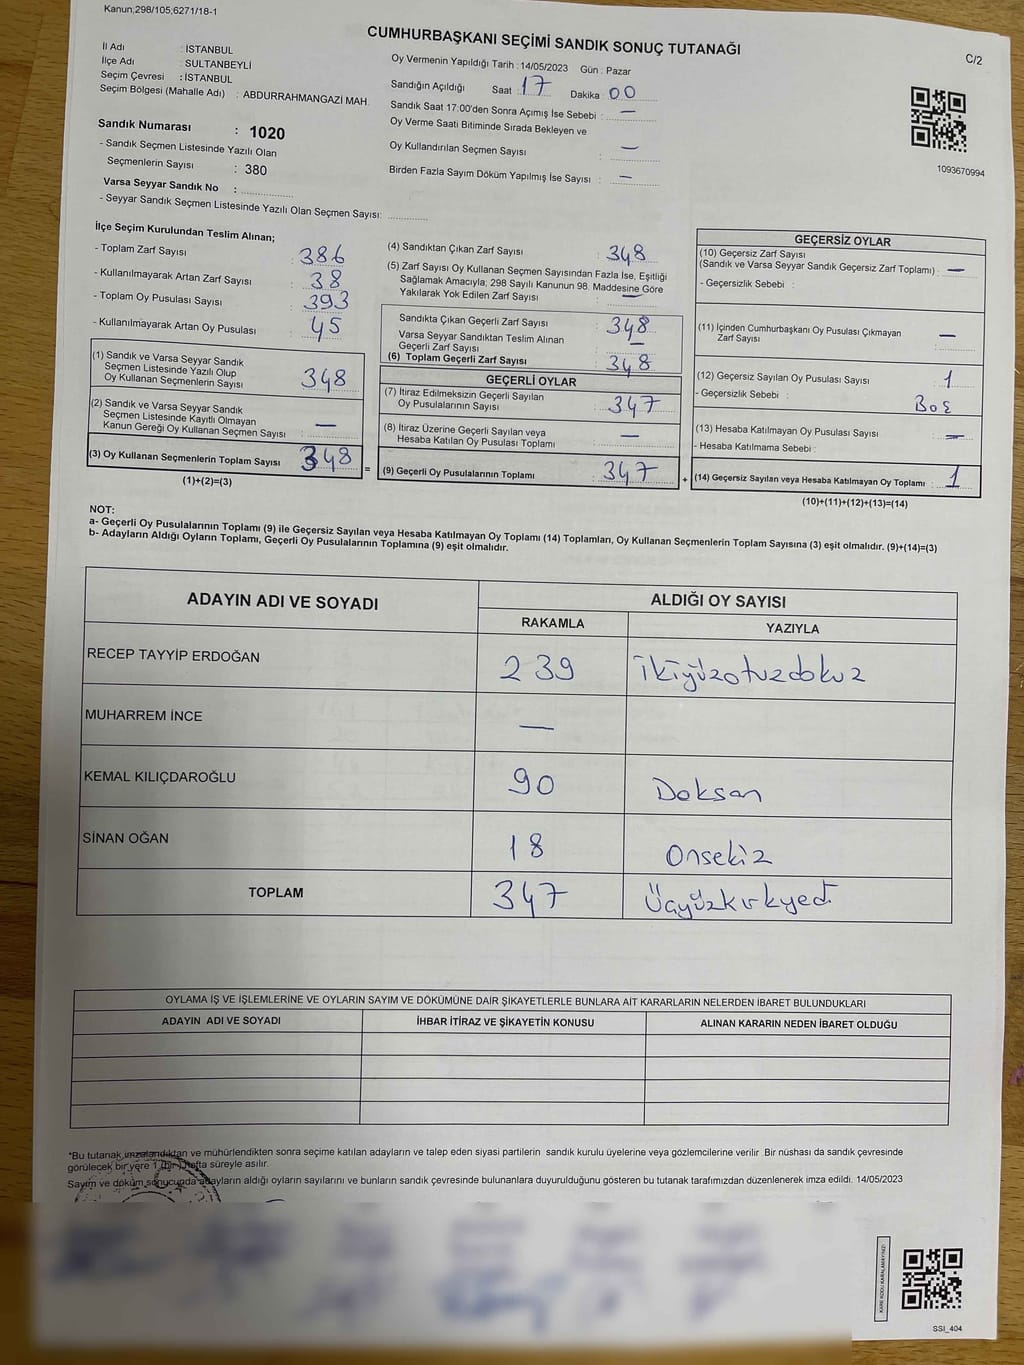 Kanun,298/105,6271/18-1
CUMHURBAŞKANI SEÇİMİ SANDIK SONUÇ TUTANAĞI
C/2
İl Adı : İSTANBUL
İlçe Adı : SULTANBEYLİ
Seçim Çevresi : İSTANBUL
Seçim Bölgesi (Mahalle Adı) : ABDURRAHMANGAZİ MAH.
Sandık Numarası : 1020
- Sandık Seçmen Listesinde Yazılı Olan
Seçmenlerin Sayısı : 380
Varsa Seyyar Sandık No :
- Seyyar Sandık Seçmen Listesinde Yazılı Olan Seçmen Sayısı:
Oy Vermenin Yapıldığı Tarih : 14/05/2023 Gün : Pazar
Sandığın Açıldığı Saat 17 Dakika 00
Sandık Saat 17:00'den Sonra Açımış İse Sebebi : —
Oy Verme Saati Bitiminde Sırada Bekleyen ve
Oy Kullandırılan Seçmen Sayısı : —
Birden Fazla Sayım Döküm Yapılmış İse Sayısı : —
1093670994
İlçe Seçim Kurulundan Teslim Alınan;
- Toplam Zarf Sayısı : 386
- Kullanılmayarak Artan Zarf Sayısı : 38
- Toplam Oy Pusulası Sayısı : 393
- Kullanılmayarak Artan Oy Pusulası : 45
(1) Sandık ve Varsa Seyyar Sandık
Seçmen Listesinde Yazılı Olup
Oy Kullanan Seçmenlerin Sayısı : 348
(2) Sandık ve Varsa Seyyar Sandık
Seçmen Listesinde Kayıtlı Olmayan
Kanun Gereği Oy Kullanan Seçmen Sayısı : —
(3) Oy Kullanan Seçmenlerin Toplam Sayısı : 348
(1)+(2)=(3)
(4) Sandıktan Çıkan Zarf Sayısı : 348
(5) Zarf Sayısı Oy Kullanan Seçmen Sayısından Fazla İse, Eşitliği
Sağlamak Amacıyla; 298 Sayılı Kanunun 98. Maddesine Göre
Yakılarak Yok Edilen Zarf Sayısı : —
Sandıkta Çıkan Geçerli Zarf Sayısı : 348
Varsa Seyyar Sandıktan Teslim Alınan
Geçerli Zarf Sayısı : —
(6) Toplam Geçerli Zarf Sayısı : 348
GEÇERLİ OYLAR
(7) İtiraz Edilmeksizin Geçerli Sayılan
Oy Pusulalarının Sayısı : 347
(8) İtiraz Üzerine Geçerli Sayılan veya
Hesaba Katılan Oy Pusulası Toplamı : —
= (9) Geçerli Oy Pusulalarının Toplamı : 347
GEÇERSİZ OYLAR
(10) Geçersiz Zarf Sayısı
(Sandık ve Varsa Seyyar Sandık Geçersiz Zarf Toplamı) : —
- Geçersizlik Sebebi :
(11) İçinden Cumhurbaşkanı Oy Pusulası Çıkmayan
Zarf Sayısı : —
(12) Geçersiz Sayılan Oy Pusulası Sayısı : 1
- Geçersizlik Sebebi : Boş
(13) Hesaba Katılmayan Oy Pusulası Sayısı : —
- Hesaba Katılmama Sebebi :
+ (14) Geçersiz Sayılan veya Hesaba Katılmayan Oy Toplamı : 1
(10)+(11)+(12)+(13)=(14)
NOT:
a- Geçerli Oy Pusulalarının Toplamı (9) ile Geçersiz Sayılan veya Hesaba Katılmayan Oy Toplamı (14) Toplamları, Oy Kullanan Seçmenlerin Toplam Sayısına (3) eşit olmalıdır. (9)+(14)=(3)
b- Adayların Aldığı Oyların Toplamı, Geçerli Oy Pusulalarının Toplamına (9) eşit olmalıdır.
ADAYIN ADI VE SOYADI ALDIĞI OY SAYISI
RAKAMLA YAZIYLA
RECEP TAYYİP ERDOĞAN 239 ikiyüzotuzdokuz
MUHARREM İNCE —
KEMAL KILIÇDAROĞLU 90 Doksan
SİNAN OĞAN 18 Onsekiz
TOPLAM 347 Üçyüzkırkyedi
OYLAMA İŞ VE İŞLEMLERİNE VE OYLARIN SAYIM VE DÖKÜMÜNE DAİR ŞİKAYETLERLE BUNLARA AİT KARARLARIN NELERDEN İBARET BULUNDUKLARI
ADAYIN ADI VE SOYADI İHBAR İTİRAZ VE ŞİKAYETİN KONUSU ALINAN KARARIN NEDEN İBARET OLDUĞU
*Bu tutanak imzalandıktan ve mühürlendikten sonra seçime katılan adayların ve talep eden siyasi partilerin sandık kurulu üyelerine veya gözlemcilerine verilir Bir nüshası da sandık çevresinde
görülecek bir yere 1 (bir) hafta süreyle asılır.
Sayım ve döküm sonucunda adayların aldığı oyların sayılarını ve bunların sandık çevresinde bulunanlara duyurulduğunu gösteren bu tutanak tarafımızdan düzenlenerek imza edildi. 14/05/2023
KARE KODU KARALAMAYINIZ!
SSI_404